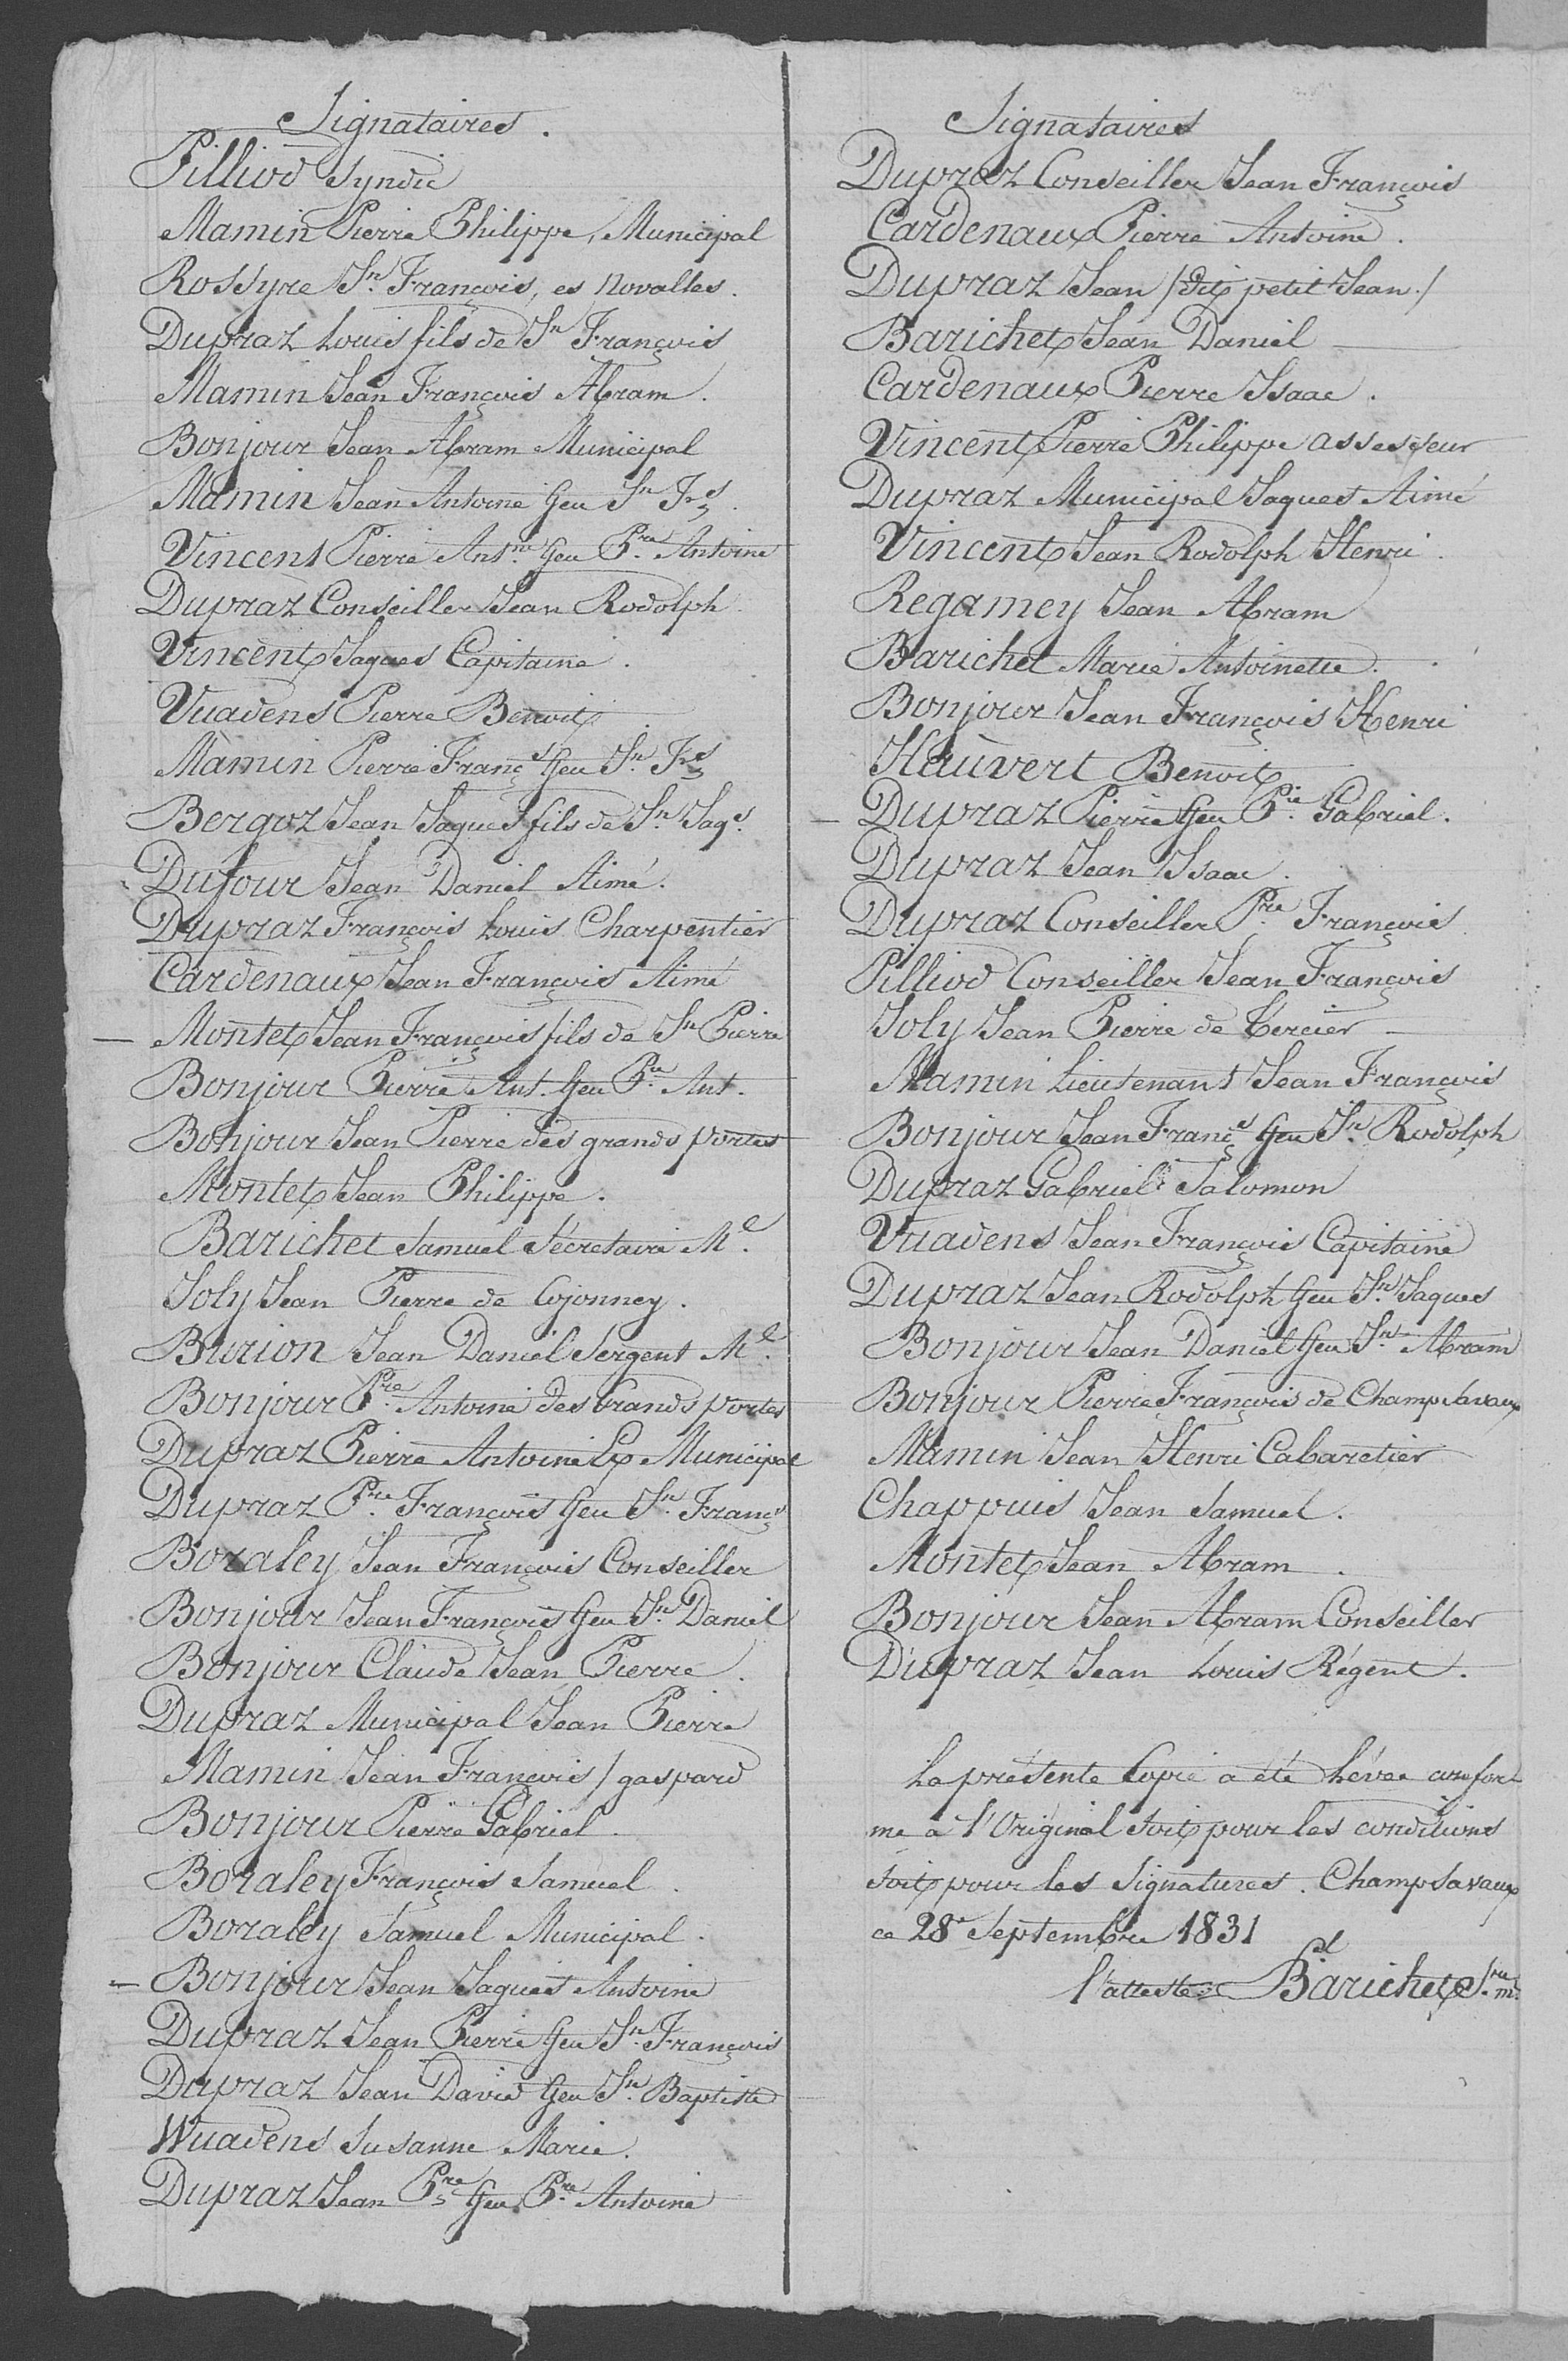 Signataires.
Pilliod Syndic
Mamin Pierre Philippe, Municipal
Rossyre Jn. François, es Novalles.
Dupraz Louis fils de Jn François
Mamin Jean François Abram.
Bonjour Jean Abram Municipal
Mamin Jean Antoine feu Jn Frs.
Vincent Pierre Antne. feu Pre. Antoine
Dupraz Conseiller Jean Rodolph
Vincent Jaques Capitaine.
Vuadens Pierre Benoit
Mamin Pierre Françs feu Jn. Frs
Bergoz Jean Jaques fils de Jn. Jaqs.
Dufour Jean Daniel Aimé.
Dupraz François Louis Charpentier
Cardenaux Jean François Aimé
— Montet Jean François fils de Jn Pierre
Bonjour Pierre Ant. feu Pre. Ant.
Bonjour Jean Pierre des grands portes
Montet Jean Philippe.
Barichet Samuel Sécretaire Ml.
Joly Jean Pierre de Cojonney.
Burion Jean Daniel Sergent Ml.
Bonjour Pre. Antoine des Grands portes
Dupraz Pierre Antoine Ex Municipal
Dupraz Pre. François feu Jn. Françs
Boraley Jean François Conseiller
Bonjour Jean François feu Jn. Daniel
Bonjour Claude Jean Pierre.
Dupraz Municipal Jean Pierre
Mamin Jean François / gaspard
Bonjour Pierre Gabriel.
Boraley François Samuel.
Boraley Samuel Municipal.
— Bonjour Jean Jaques Antoine
Dupraz Jean Pierre feu Jn. François
Dupraz Jean David feu Jn. Baptiste
Wuadens Susanne Marie.
Dupraz Jean Pre feu Pre. Antoine
Signataires
Dupraz Conseiller Jean François
Cardenaux Pierre Antoine.
Dupraz Jean / dit petit Jean. /
Barichet Jean Daniel —
Cardenaux Pierre Isaac.
Vincent Pierre Philippe assesseur
Dupraz Municipal Jaques Aimé
Vincent Jean Rodolph Henri.
Regamey Jean Abram
Barichet Marie Antoinette.
Bonjour Jean François Henri
Hauvert Benoit
— Dupraz Pierre feu Pre. Gabriel.
Dupraz Jean Isaac.
Dupraz Conseiller Pre. François
Pilliod Conseiller Jean François
Joly Jean Pierre de Tercier —
Mamin Lieutenant Jean François
Bonjour Jean Françs feu Jn. Rodolph
Dupraz Gabriel Salomon
Vuadens Jean François Capitaine
Dupraz Jean Rodolph feu Jn. Jaques
Bonjour Jean Daniel feu Jn. Abram
Bonjour Pierre François de Champsavaux
Mamin Jean Henri Cabaretier
Chappuis Jean Samuel.
Montet Jean Abram.
Bonjour Jean Abram Conseiller
Dupraz Jean Louis Régent.
La présente Copie a été Lévée confor
me à l'Original soit pour les conditions
soit pour les Signatures. Champsavaux
ce 28e Septembre 1831
l'atteste Barichet Sre. m.